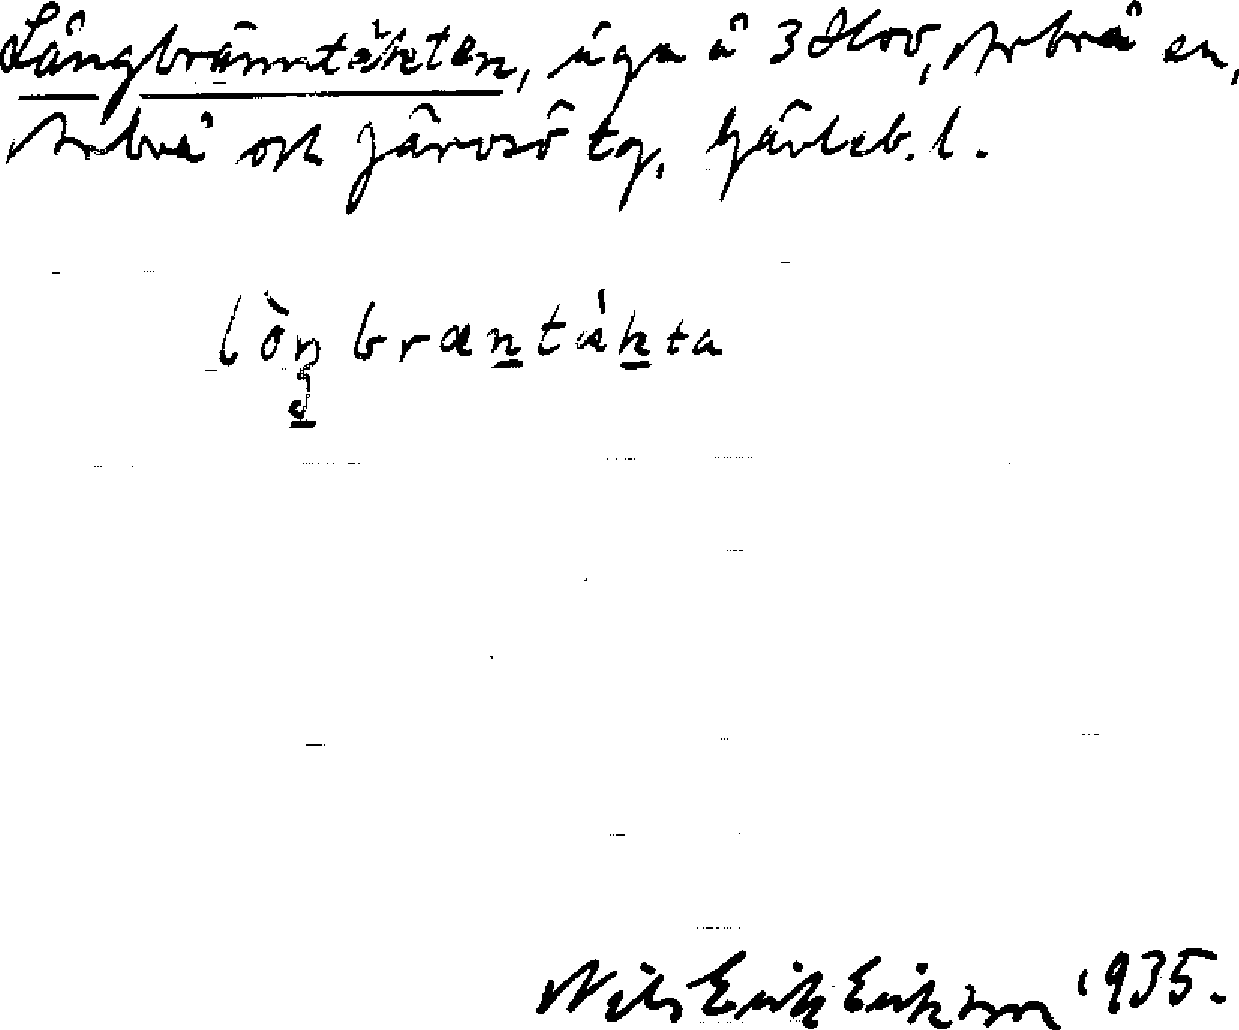 Långbränntäkten, äga å 3 Hov, Arbrå sn,
Arbrå och Järvsö tg, Gävleb. l.
lòŋbræntákta
Nils Erik Eriksson 1935.